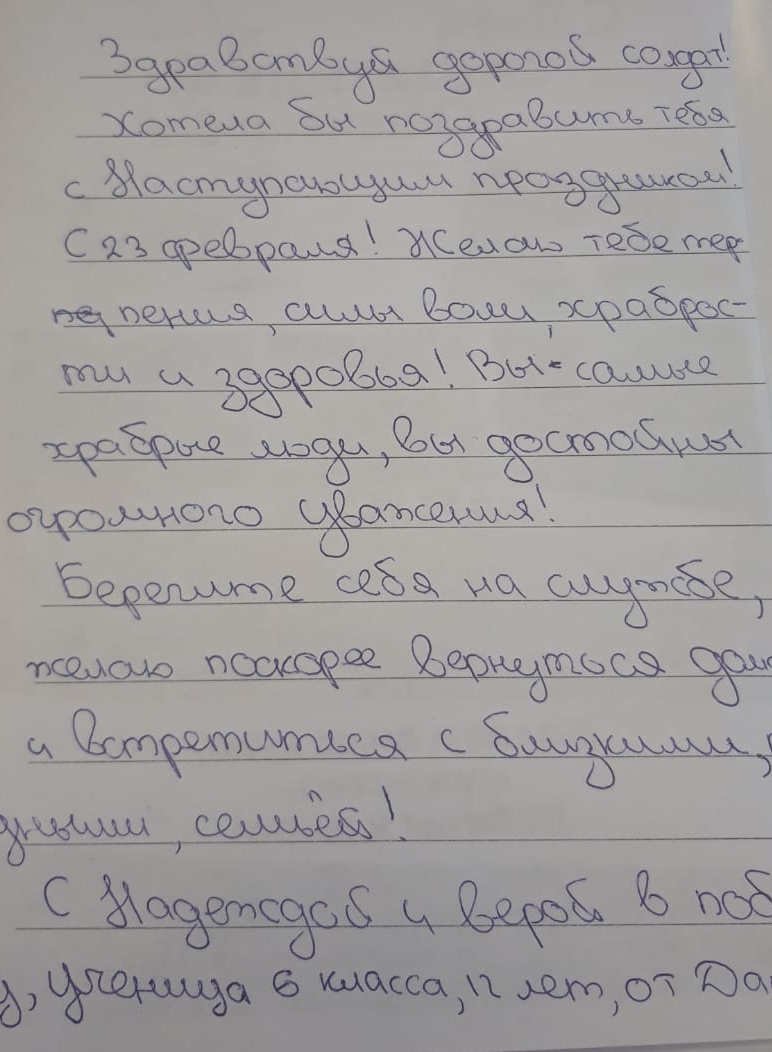 Здравствуй дорогой солдат!
Хотела бы поздравить тебя
с Наступающим праздником!
С 23 февраля! Желаю тебе тер-
пения, силы воли, храброс-
ти и здоровья! Вы - самые
храбрые люди, вы достойны
огромного уважения!
Берегите себя на службе,
желаю поскорее вернуться дом
и встретиться с близкими,
дными, семьёй!
С Надеждой и верой в поб
у, ученица 6 класса, 12 лет, от Да